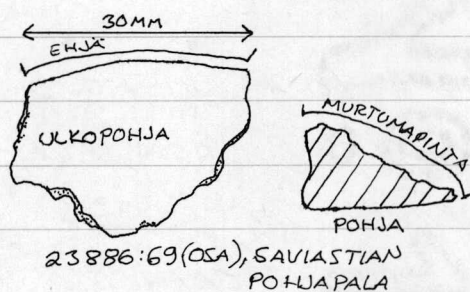 30MM
EHJÄ
ULKOPOHJA
MURTUMAPINTA
POHJA
23886:69(OSA), SAVIASTIAN
POHJAPALA